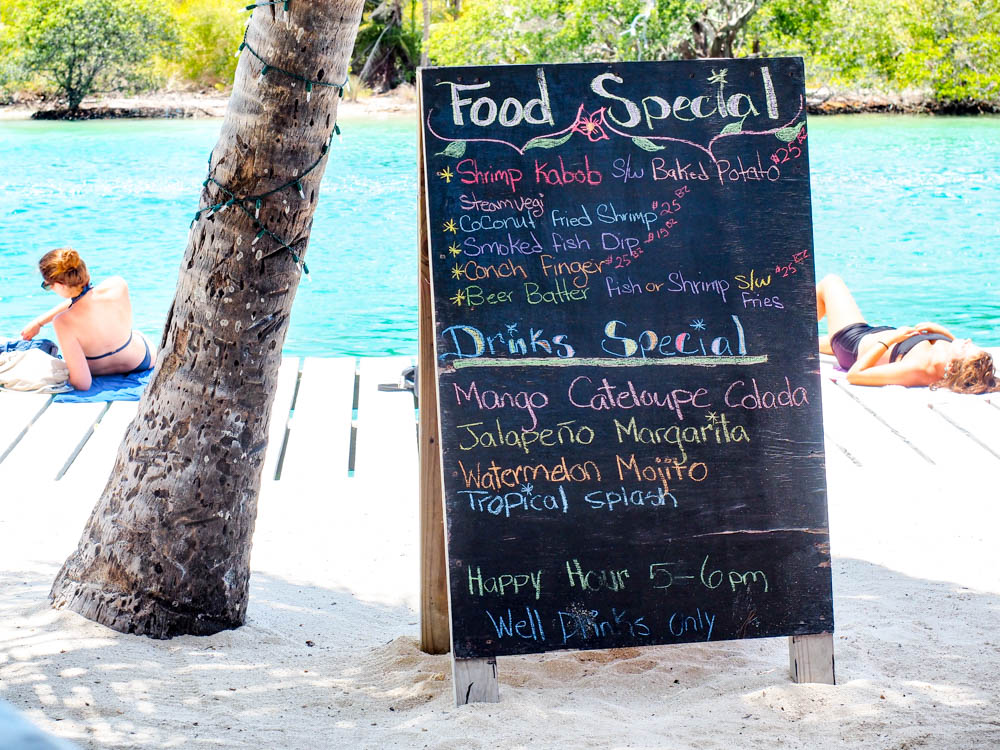 Food Special
Shrimp Kabob s/w Baked Potato $25 BZ
Steam vegi
Coconut fried Shrimp $25 BZ
Smoked fish Dip $15 BZ
Conch Finger $25 BZ
Beer Batter fish or Shrimp s/w Fries $25 BZ
Drinks Special
Mango Cateloupe Colada
Jalapeño Margarita
Watermelon Mojito
Tropical splash
Happy Hour 5-6pm
Well Drinks only